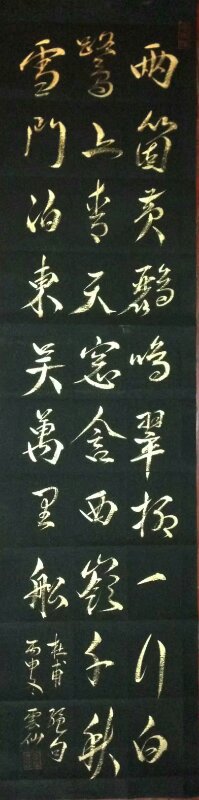 兩箇黃鸝鳴翠柳一行白
鷺上青天窓含西嶺千秋
雪門泊東吴萬里船
杜甫絕句
丙申冬雲仙